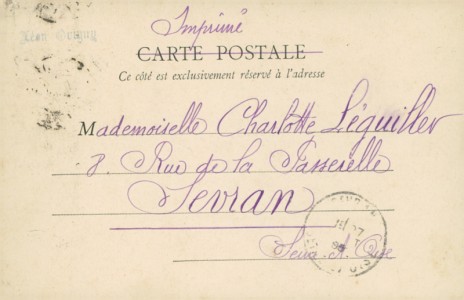 Imprimé
CARTE POSTALE
Ce côté est exclusivement réservé à l'adresse
Mademoiselle Charlotte Léguiller
8. Rue de la Passerelle
Sevran
Seine-et-Oise